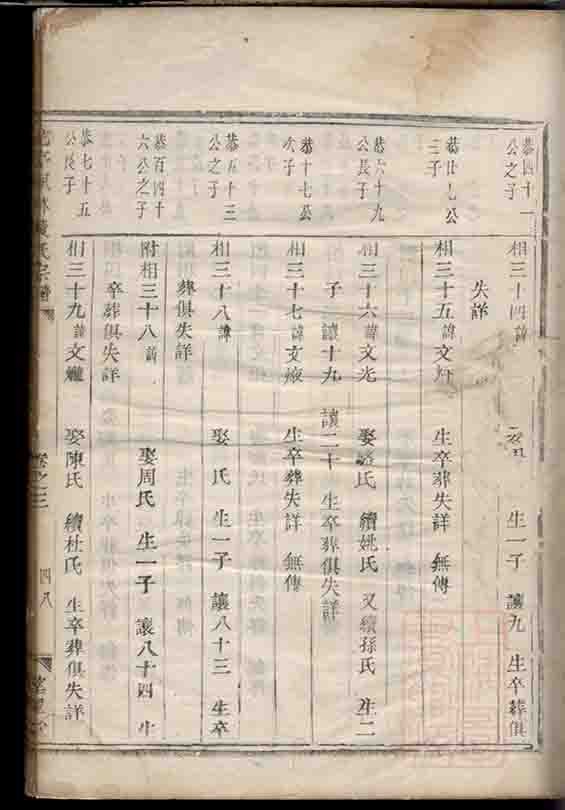 恭四十一
公之子
相三十四諱 生一子 讓九 生卒葬俱
失詳
恭廿七公
三子
相三十五諱文 生卒葬失詳 無傳
恭六十九
公長子
相三十六諱文光 娶 氏 續姚氏 又續孫氏 生二
子 讓十九 讓二十 生卒葬俱失詳
恭十七公
次子
相三十七諱文 生卒葬失詳 無傳
恭五十三
公之子
相三十八諱 娶 氏 生一子 讓八十三 生卒
葬俱失詳
恭百四十
六公之子
附相三十八諱 娶周氏 生一子 讓八十四 生
卒葬俱失詳
恭七十五
公長子
相三十九諱文 娶陳氏 續杜氏 生卒葬俱失詳
氏宗譜
卷之三
四八